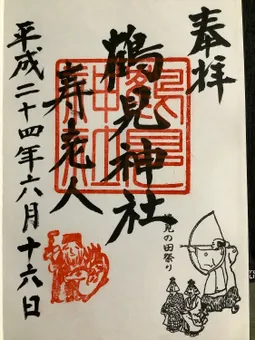 奉拝
鶴見神社
寿老人
平成二十四年六月十六日
見の田祭り